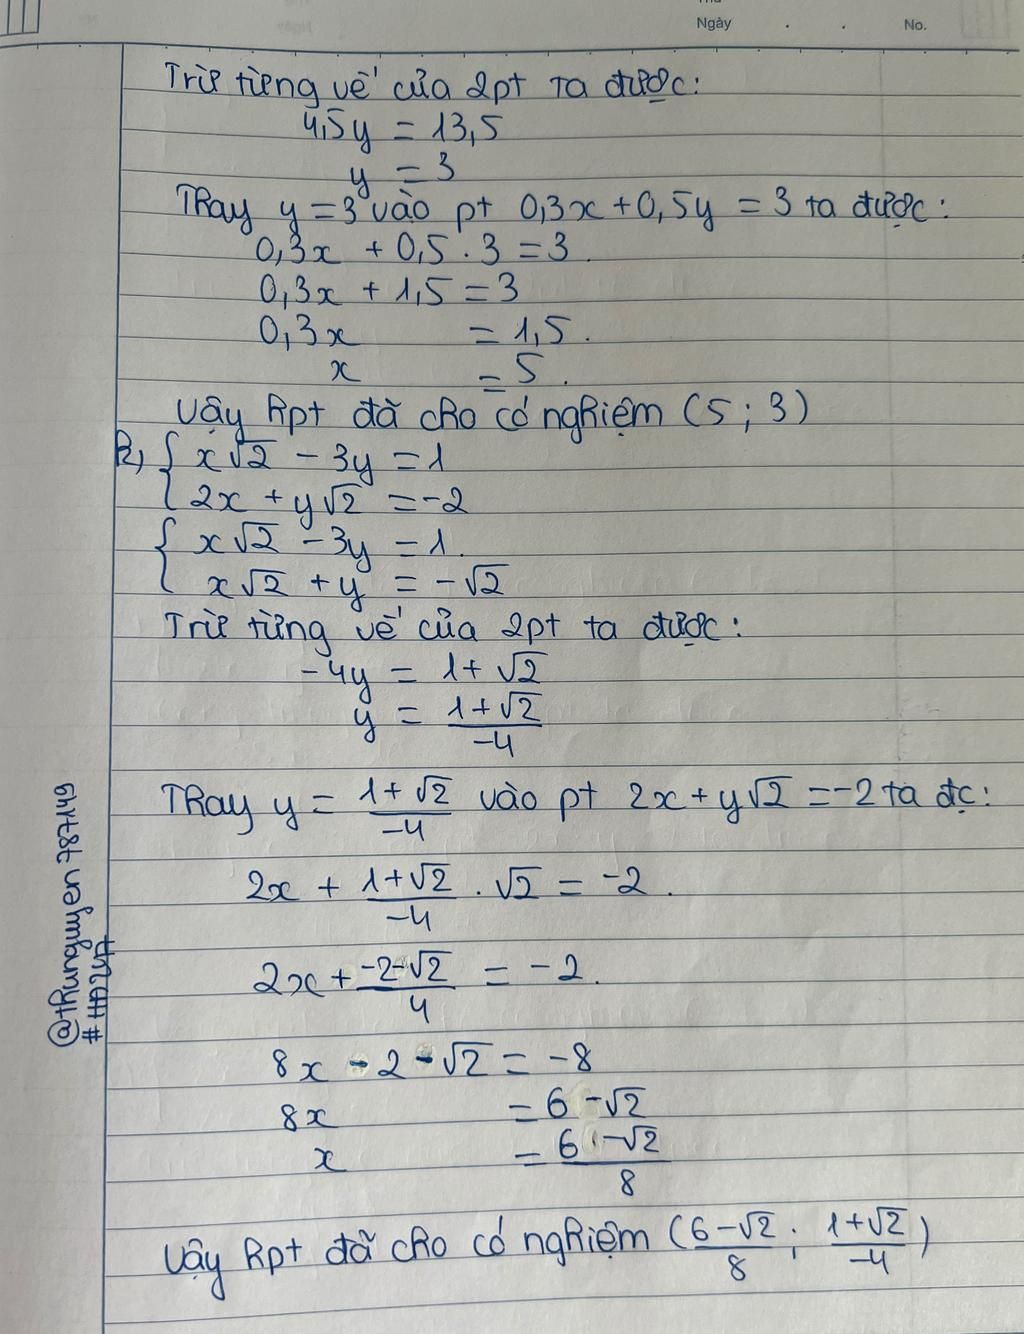 Ngày . . No.
Trừ từng vế của 2pt ta được:
4,5y = 13,5
y = 3
Thay y = 3 vào pt 0,3x + 0,5y = 3 ta được:
0,3x + 0,5 . 3 = 3.
0,3x + 1,5 = 3
0,3x = 1,5.
x = 5.
Vậy hpt đã cho có nghiệm (5 ; 3)
h, { x√2 - 3y = 1
2x + y√2 = -2
{ x√2 - 3y = 1.
x√2 + y = -√2
Trừ từng vế của 2pt ta được:
-4y = 1 + √2
y = (1+√2)/-4
Thay y = (1+√2)/-4 vào pt 2x + y√2 = -2 ta đc:
2x + (1+√2)/-4 . √2 = -2.
2x + (-2-√2)/4 = -2.
8x - 2 - √2 = -8
8x = 6 - √2
x = (6 - √2)/8
Vậy hpt đã cho có nghiệm ((6-√2)/8 ; (1+√2)/-4)
@thunguyen787449